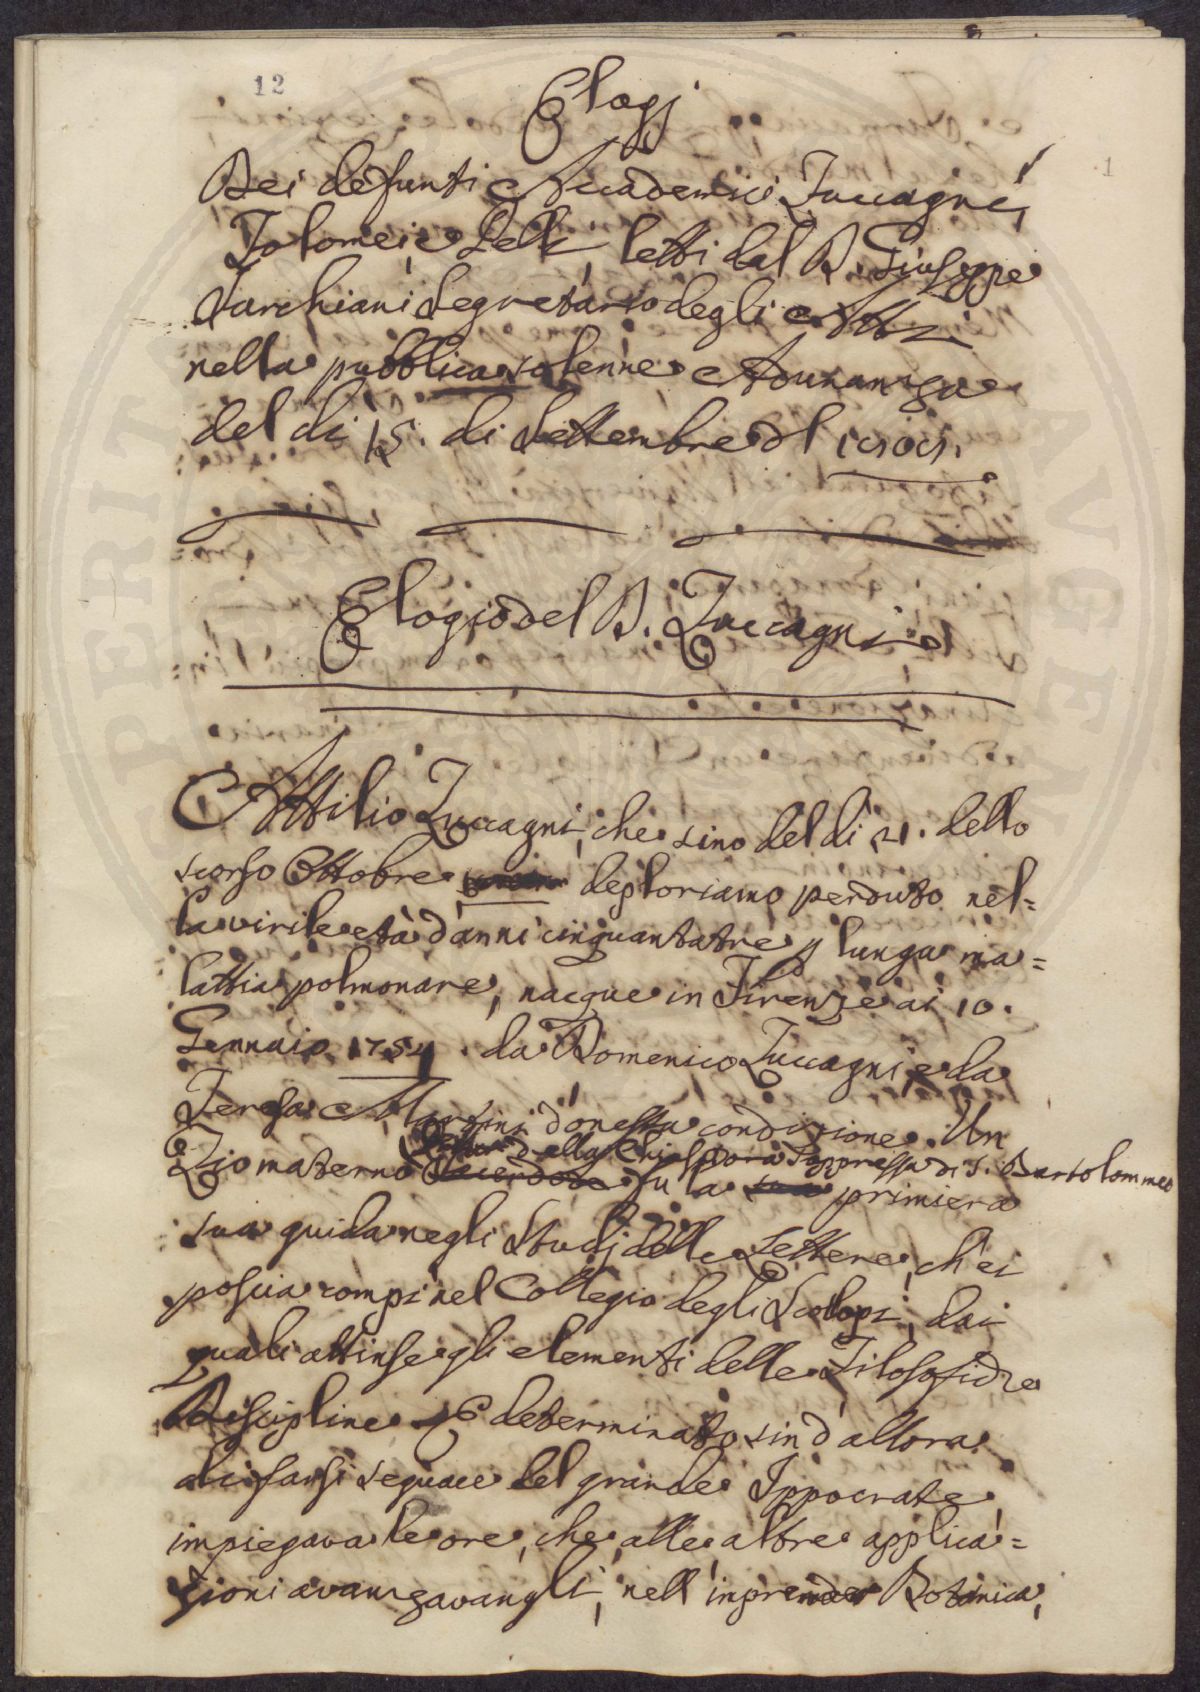 12
1
Elogj
Dei defunti Accademici Zuccagni,
Tolomei, e Lelli, letti dal D. Giuseppe
Sarchiani Segretario degli Atti
nella pubblica solenne Adunanza
del dì 15. di Settembre dl
Elogio del D. Zuccagni
Attilio Zuccagni, che sino del dì 21. dello
scorso Ottobre deploriamo perduto nel=
la virile età d'anni cinquantatre p lunga ma=
lattia polmonare, nacque in Firenze ai 10.
Gennaio 1754. da Domenico Zuccagni, e da
Teresa Martini d'onesta condizione. Un
Rettore della Chiesa ora soppressa di S. Bartolommeo
Zio materno Sacerdote fu la primiera
sua guida negli Studj delle Lettere, ch'ei
poscia compì nel Collegio degli Scolopi, dai
quali attinse gli elementi delle Filosofiche
Discipline. E determinato sin d'allora
di farsi seguace del grande Ippocrate
impiegava le ore, che alle altre applica=
zioni avanzavangli, nell'inprender Botanica,